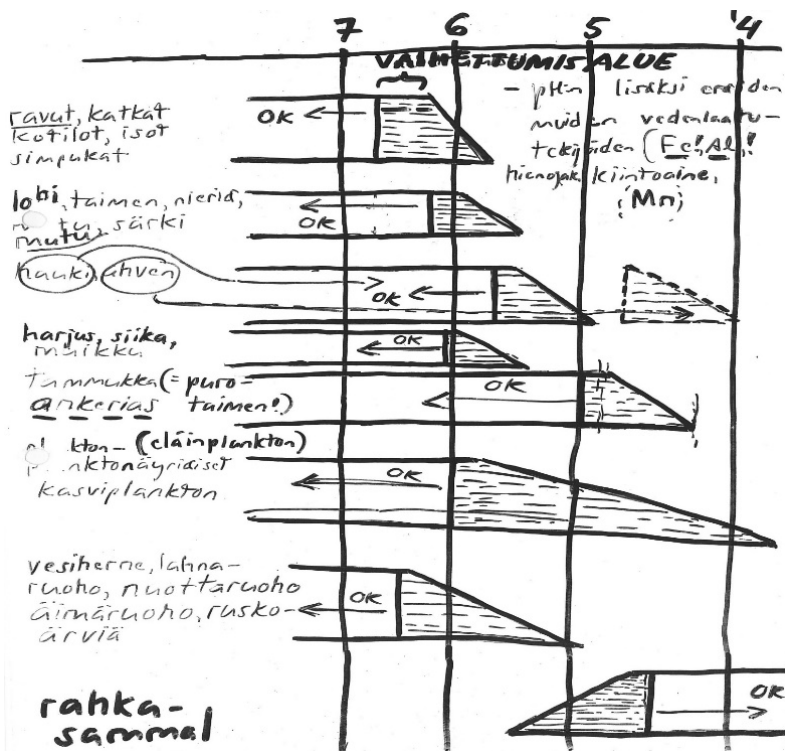 7 6 5 4
VAIHETTUMISALUE
- pH:n lisäksi eräiden
muiden vedenlaatu-
tekijöiden (Fe! Al!
hienojak. kiintoaine,
(Mn)
ravut, katkat
kotilot, isot
simpukat
OK
lohi, taimen, nieriä,
mutu, särki
OK
hauki, ahven
OK
harjus, siika,
muikku
OK
tammukka (= puro-
ankerias taimen!)
OK
(eläinplankton)
planktonäyriäiset
kasviplankton
OK
vesiherne, lahna-
ruoho, nuottaruoho
äimäruoho, rusko-
ärviä
OK
rahka-
sammal
OK